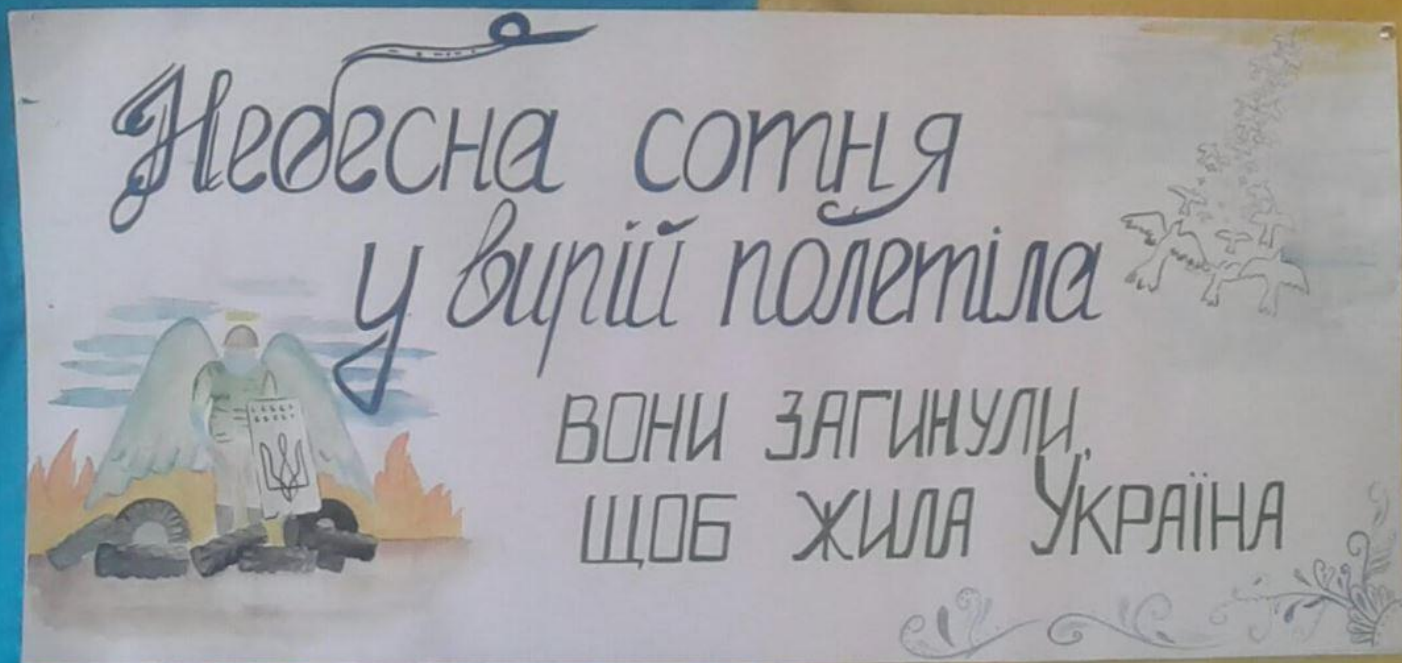 Небесна сотня
у вирій полетіла
ВОНИ ЗАГИНУЛИ,
ЩОБ ЖИЛА УКРАЇНА